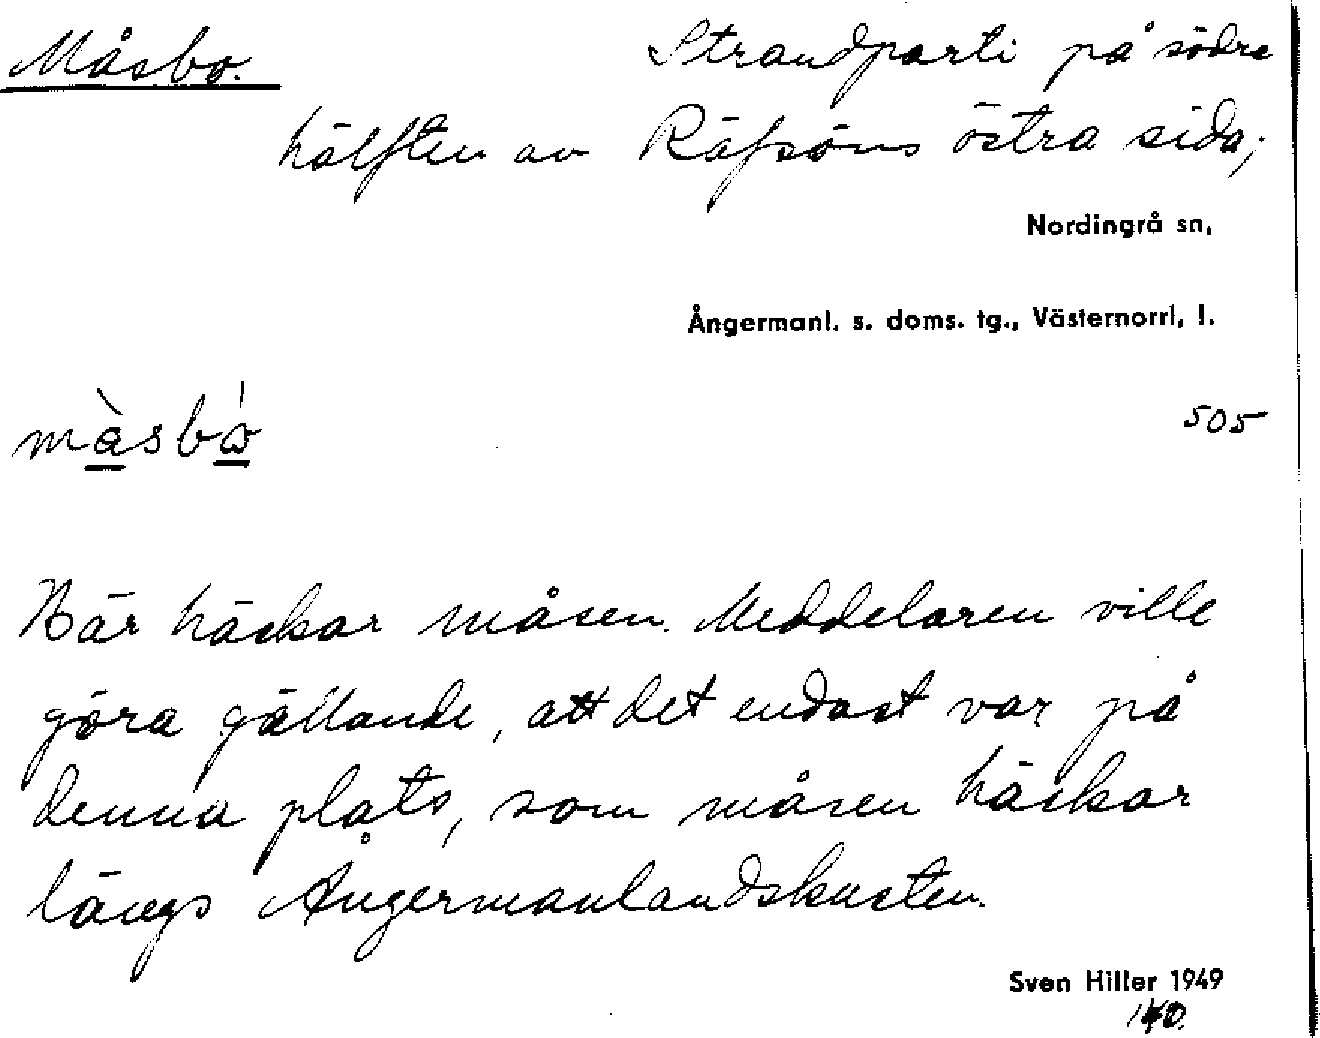 Måsbo. Strandparti på södre
hälften av Räfsöns östra sida;
Nordingrå sn,
Ångermanl. s. doms. tg., Västernorrl, l.
505
Här häckar måsen. Meddelaren ville
göra gällande, att det endast var på
denna plats, som måsen häckar
längs Ångermanlandskusten.
Sven Hiller 1949